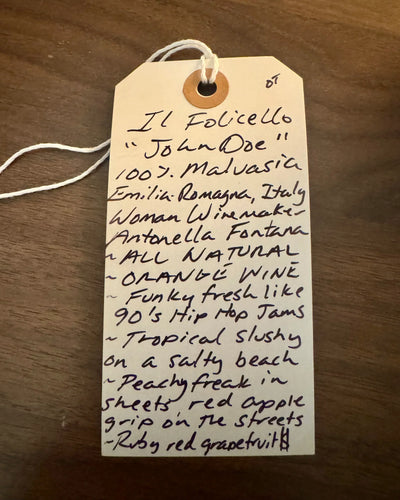 DT
Il Folicello
"John Doe"
100% Malvasia
Emilia-Romagna, Italy
Woman Winemaker
Antonella Fontana
~ ALL NATURAL
~ ORANGE WINE
~ Funky fresh like
90's Hip Hop Jams
~ Tropical slushy
on a salty beach
~ Peachy freak in
sheets red apple
grip on the streets
~ Ruby red grapefruit